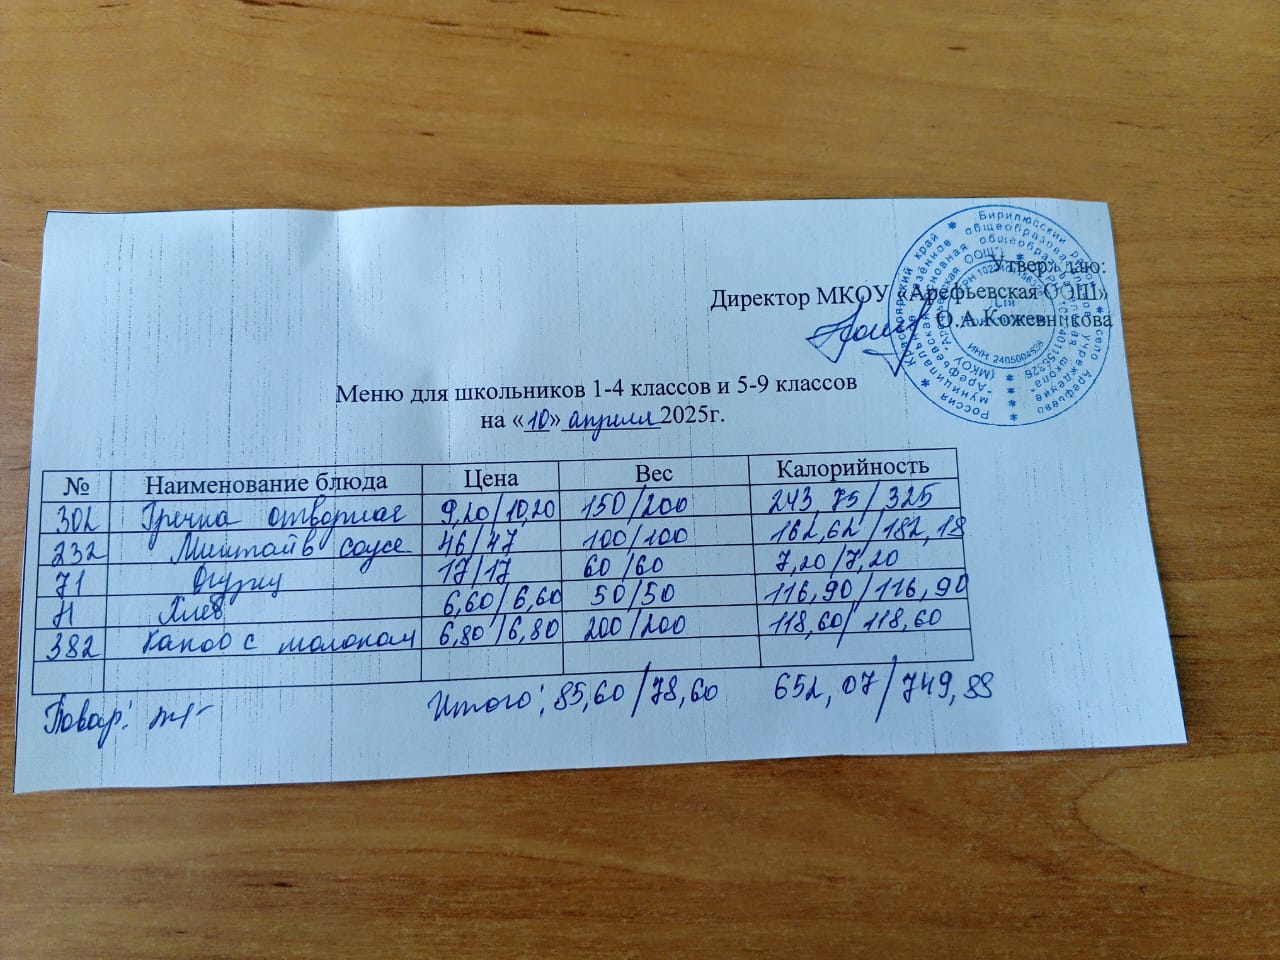 Утверждаю:
Директор МКОУ «Арефьевская ООШ»
О.А.Кожевникова
Меню для школьников 1-4 классов и 5-9 классов
на «10» апреля 2025г.
№ Наименование блюда Цена Вес Калорийность
302 Гречка отворная 9,20/10,20 150/200 243,75/325
232 Минтай в соусе 46/47 100/100 162,62/182,18
71 Огурец 17/17 60/60 7,20/7,20
Н Хлеб 6,60/6,60 50/50 116,90/116,90
382 Какао с молоком 6,80/6,80 200/200 118,60/118,60
Повар: Итого: 85,60/78,60 652,07/749,88
Россия Красноярский край Бирилюсский район село Арефьево
ИНН 2405004528